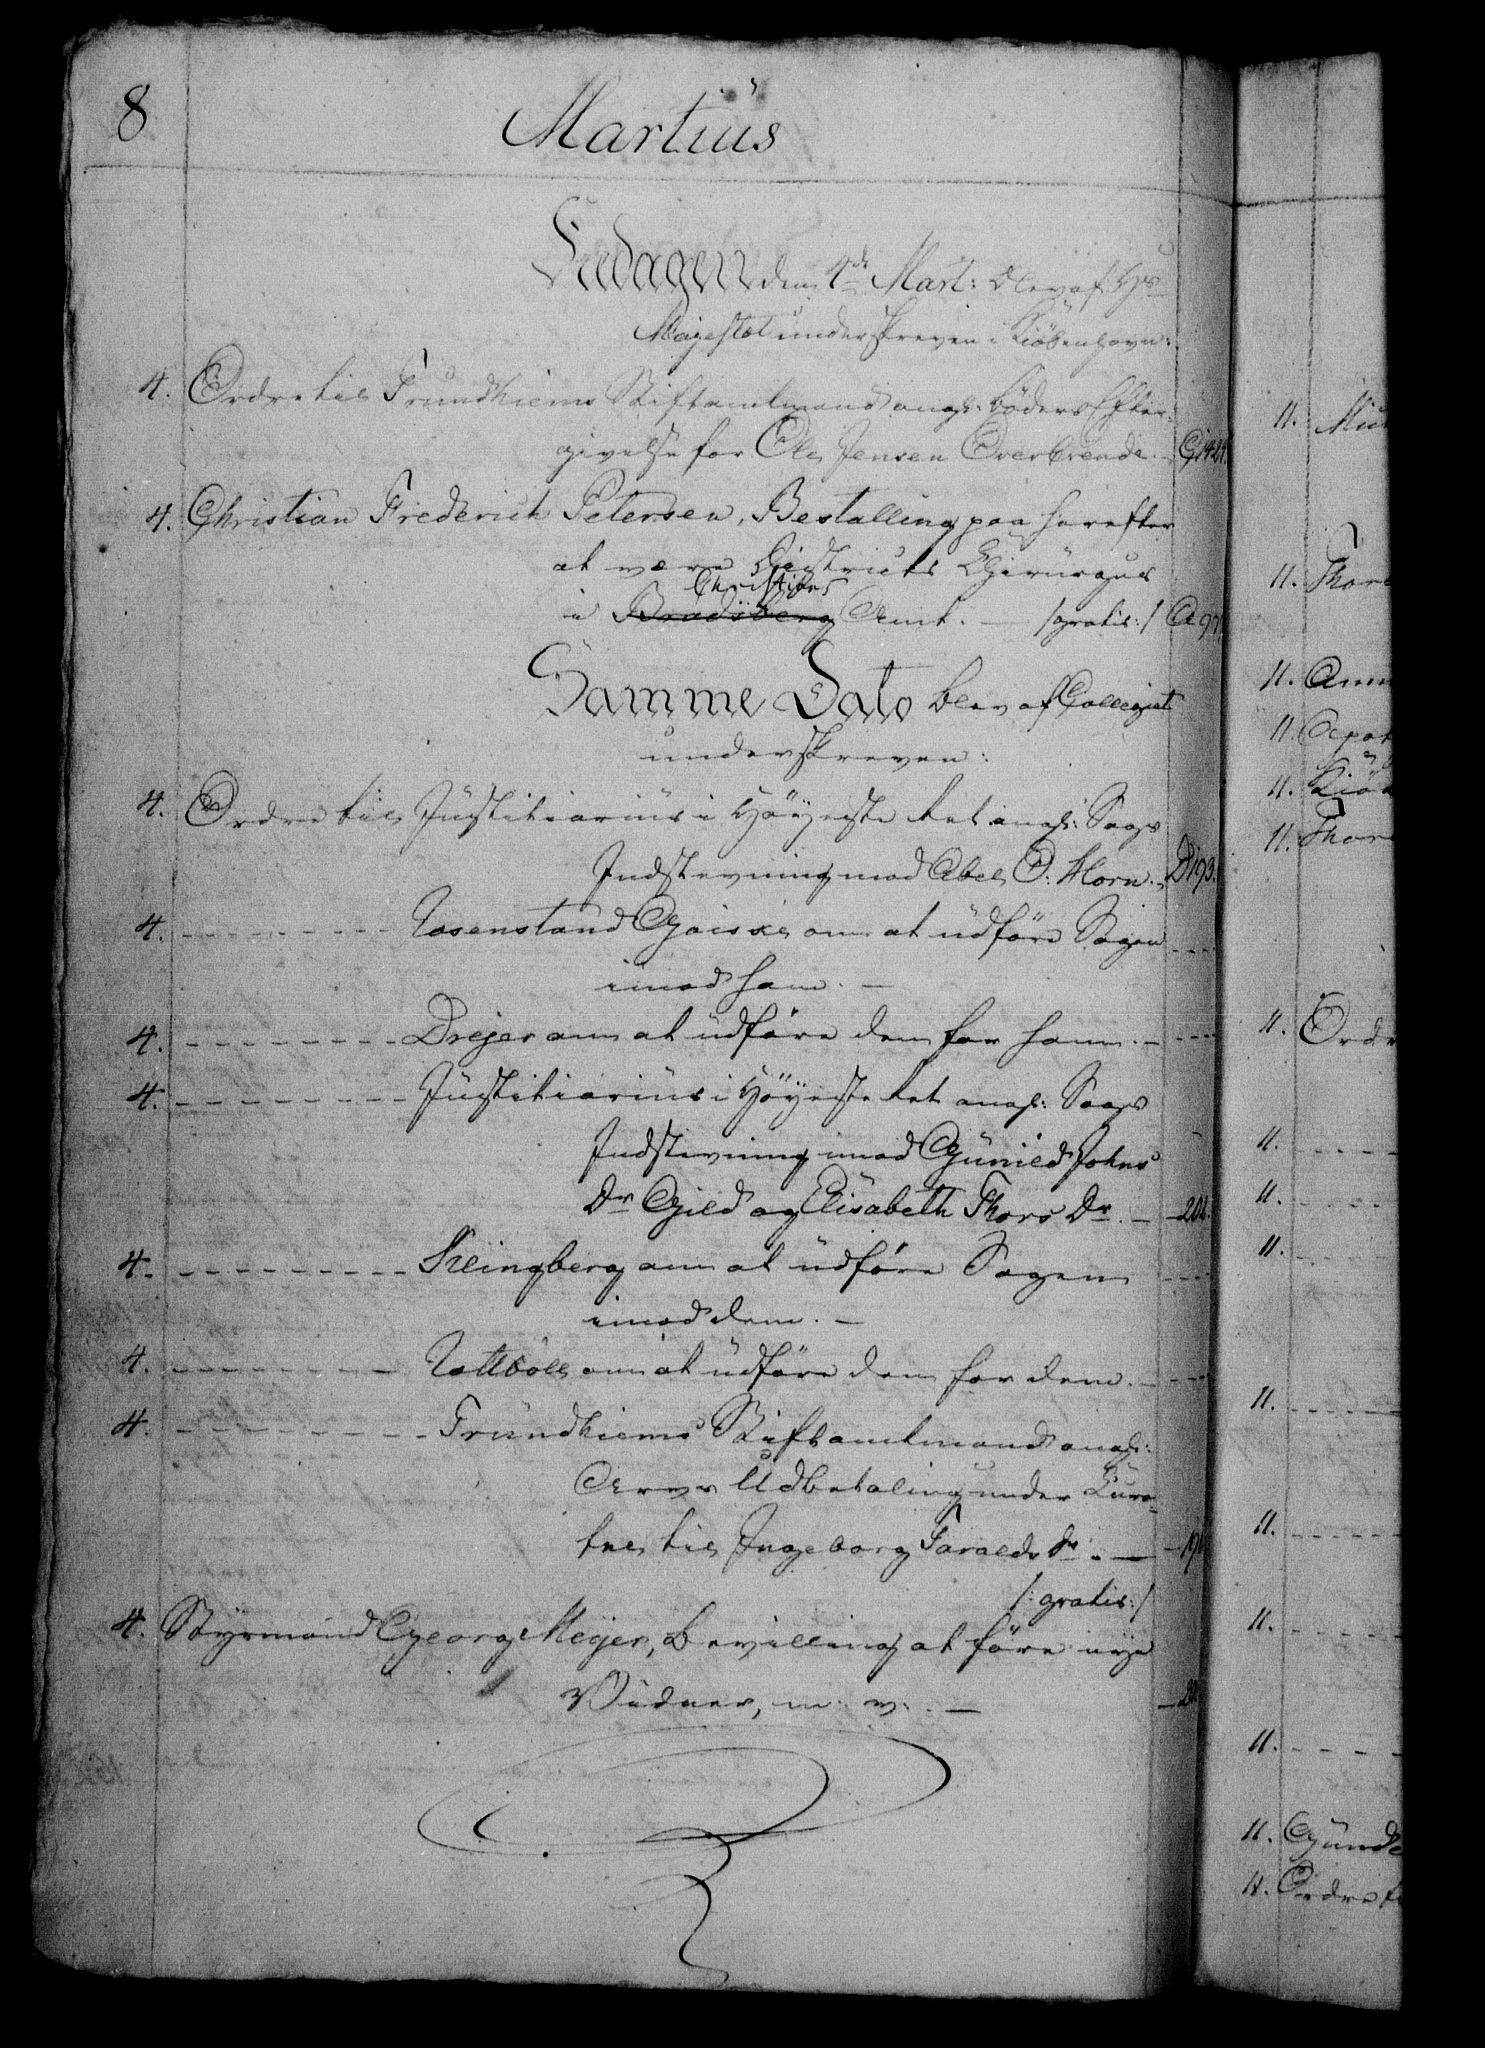 8
Martius
Fredagen den 4de Mart: blev af Hs
Majestæt underskreven i Kiöbenhavn:
4. Ordre til Trundhiems Stiftamtmand angl: Böders Efter-
givelse for Ole Jensen Overbrende. -
4. Christian Frederich Petersen, Bestalling paa herefter
at være Districts Chirurgus
Christians
i Bradsberg Amt. - /:gratis:/
Samme Dato blev af Collegiet
underskreven:
4. Ordre til Justitiarius i Höyeste Ret angl: Sags
Indstevning mod Abel O: Horn. - D 193.
4. - - - Rosenstand Goiske om at udföre Sagen
imod ham. -
4. - - - Drejer om at udföre den for ham. -
4. - - - Justitiarius i Höyeste Ret angl: Sags
Indstevning imod Gunild Johns
Dr Gield og Elisabeth Thors Dr. - - 201.
4. - - - Klingberg om at udföre Sagen
imod dem. -
4. - - - Rottböll om at udföre den for dem. -
4. - - - Trundhiems Stiftamtmand angl:
Arvs Udbetaling under Cura-
tel til Ingeborg Taralds Dr. -
/:gratis:/
4. Styrmand Georg Meyer, Bevilling at före nye
Vidner, m. v. -
11.
11. Thor
11.
11. Apot
11. Kiöb
11. Thor
11. Ordr
11. - - -
11. - - -
11. - - -
11. - - -
11. - - -
11. - - -
11. - - -
11. Gunde
11. Ordre